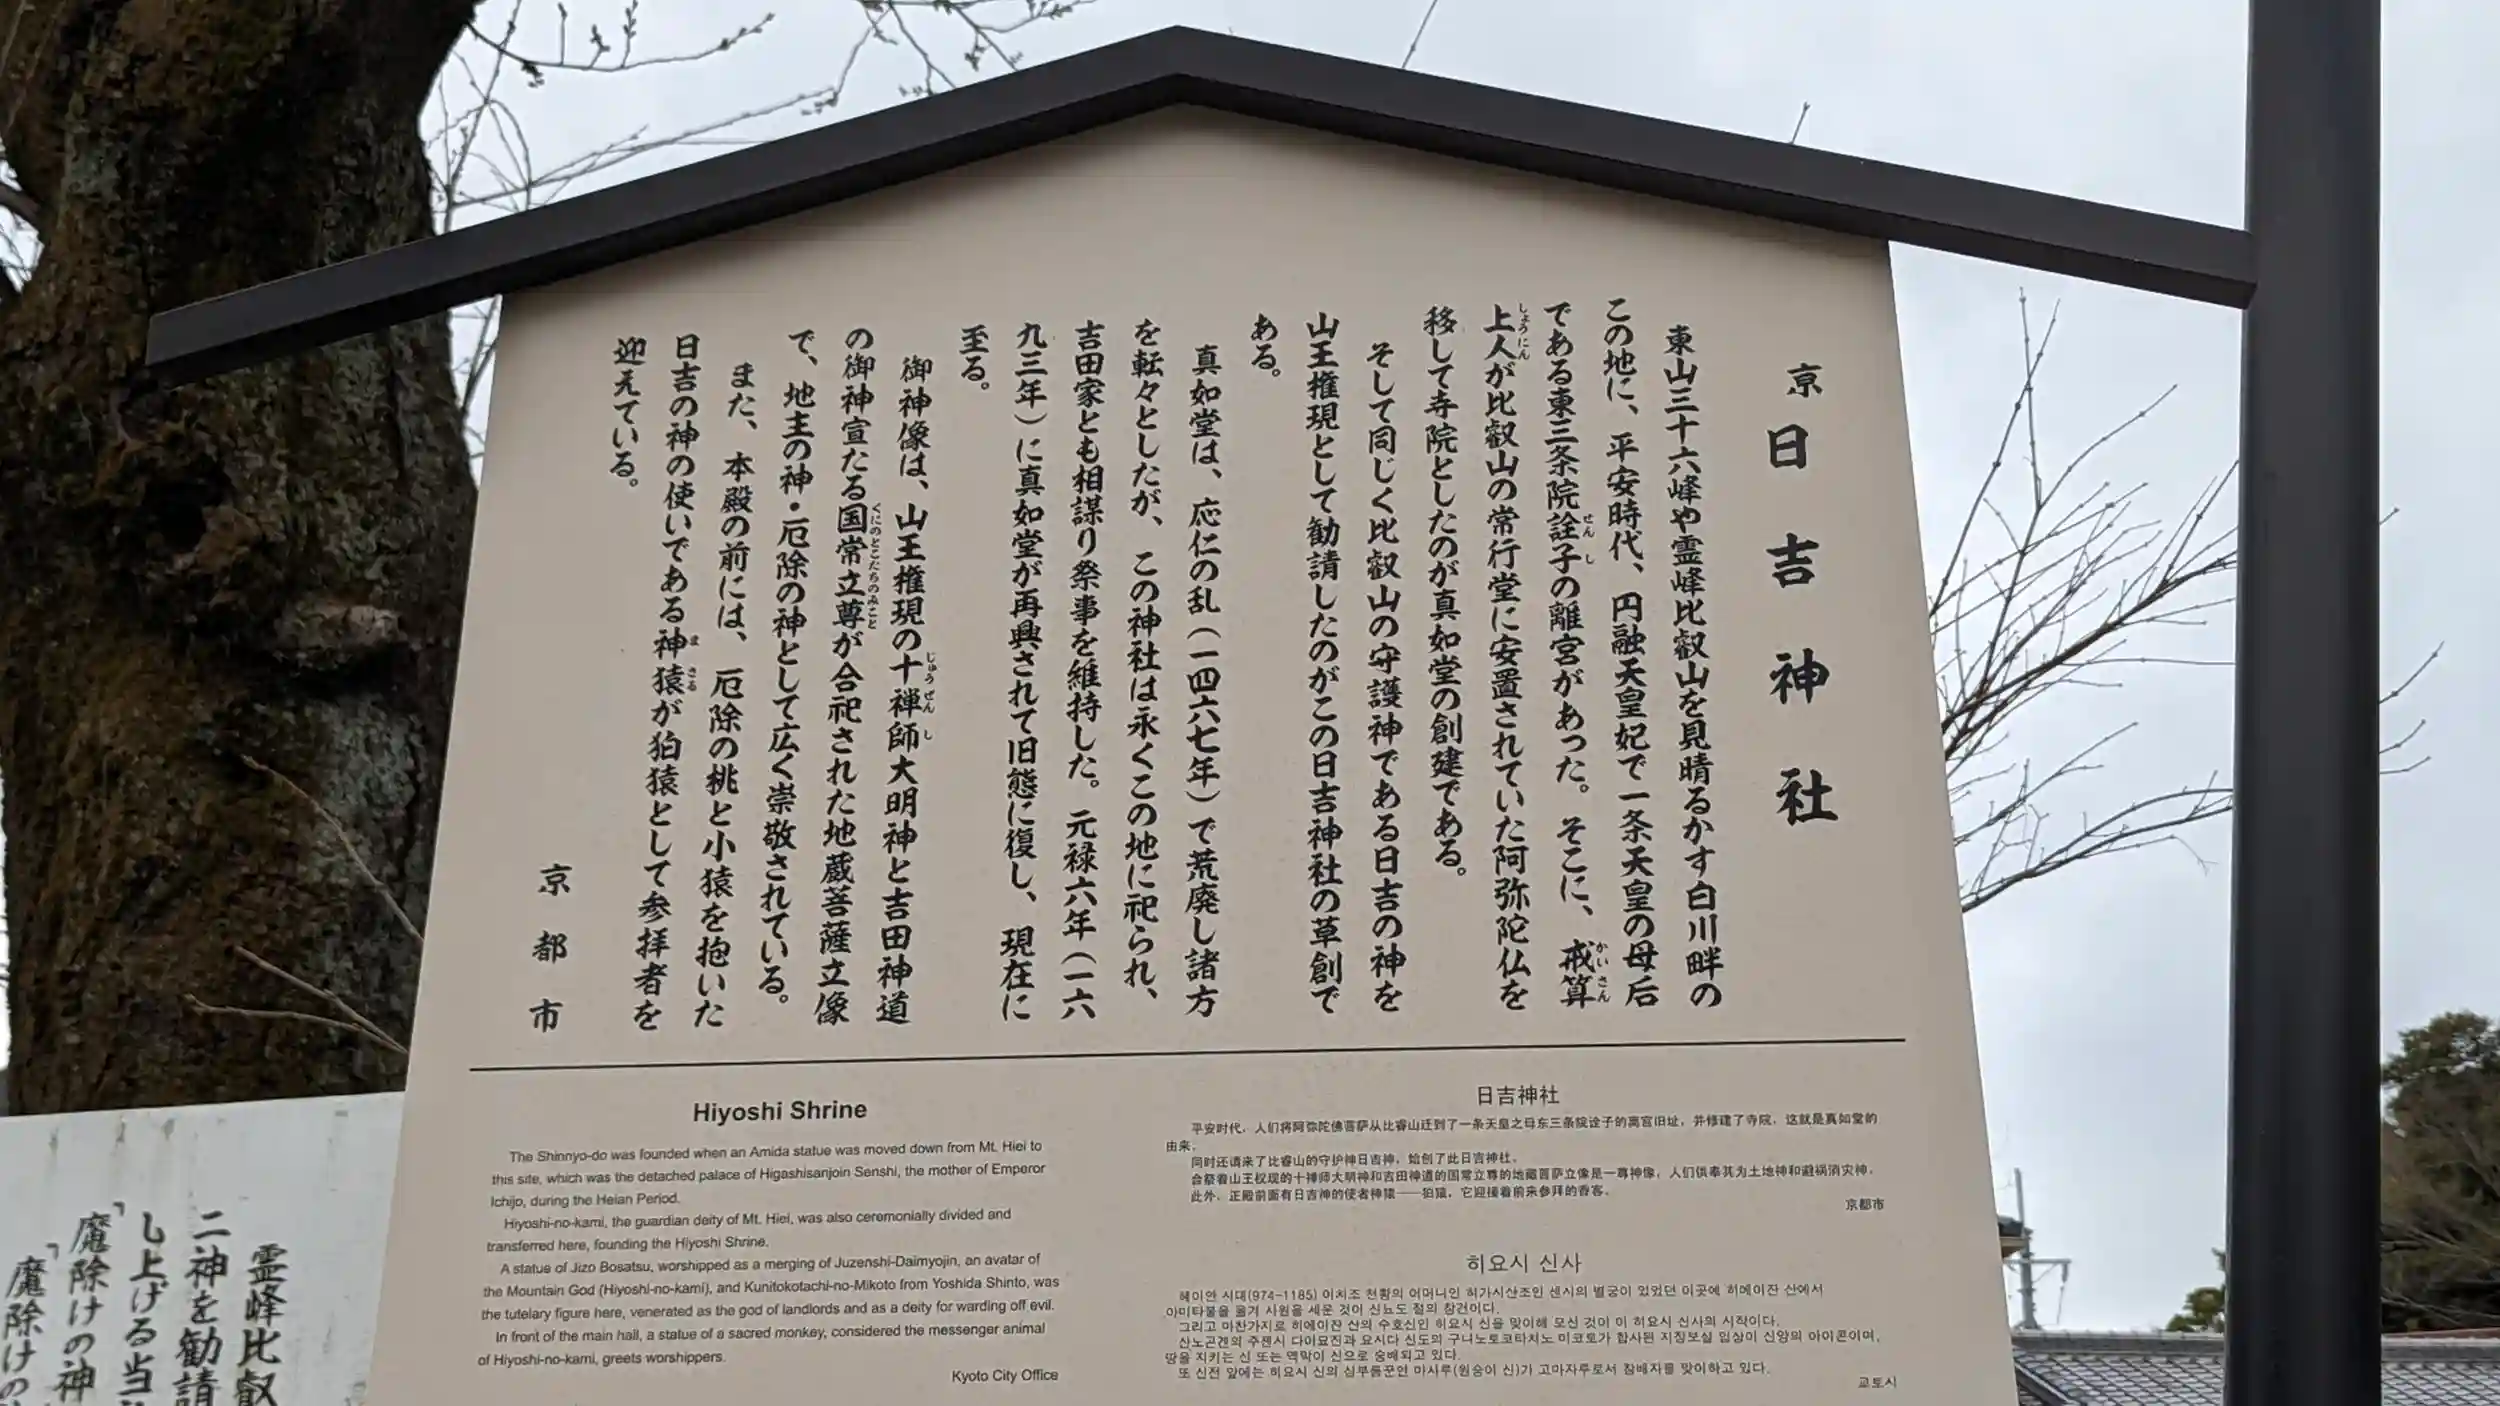 京日吉神社
東山三十六峰や霊峰比叡山を見晴るかす白川畔の
この地に、平安時代、円融天皇妃で一条天皇の母后
である東三条院詮子の離宮があった。そこに、戒算
上人が比叡山の常行堂に安置されていた阿弥陀仏を
移して寺院としたのが真如堂の創建である。
そして同じく比叡山の守護神である日吉の神を
山王権現として勧請したのがこの日吉神社の草創で
ある。
真如堂は、応仁の乱(一四六七年)で荒廃し諸方
を転々としたが、この神社は永くこの地に祀られ、
吉田家とも相謀り祭事を維持した。元禄六年(一六
九三年)に真如堂が再興されて旧態に復し、現在に
至る。
御神像は、山王権現の十禅師大明神と吉田神道
の御神宣たる国常立尊が合祀された地蔵菩薩立像
で、地主の神・厄除の神として広く崇敬されている。
また、本殿の前には、厄除の桃と小猿を抱いた
日吉の神の使いである神猿が狛猿として参拝者を
迎えている。
京都市
Hiyoshi Shrine
The Shinnyo-do was founded when an Amida statue was moved down from Mt. Hiei to
this site, which was the detached palace of Higashisanjoin Senshi, the mother of Emperor
Ichijo, during the Heian Period.
Hiyoshi-no-kami, the guardian deity of Mt. Hiei, was also ceremonially divided and
transferred here, founding the Hiyoshi Shrine.
A statue of Jizo Bosatsu, worshipped as a merging of Juzenshi-Daimyojin, an avatar of
the Mountain God (Hiyoshi-no-kami), and Kunitokotachi-no-Mikoto from Yoshida Shinto, was
the tutelary figure here, venerated as the god of landlords and as a deity for warding off evil.
In front of the main hall, a statue of a sacred monkey, considered the messenger animal
of Hiyoshi-no-kami, greets worshippers.
Kyoto City Office
日吉神社
平安时代，人们将阿弥陀佛菩萨从比睿山迁到了一条天皇之母东三条院诠子的离宫旧址，并修建了寺院，这就是真如堂的
由来。
同时还请来了比睿山的守护神日吉神，始创了此日吉神社。
合祭着山王权现的十禅师大明神和吉田神道的国常立尊的地藏菩萨立像是一尊神像，人们供奉其为土地神和避祸消灾神。
此外，正殿前面有日吉神的使者神猿——狛猿，它迎接着前来参拜的香客。
京都市
히요시 신사
헤이안 시대(974-1185) 이치조 천황의 어머니인 히가시산조인 센시의 별궁이 있었던 이곳에 히에이잔 산에서
아미타불을 옮겨 사원을 세운 것이 신뇨도 절의 창건이다.
그리고 마찬가지로 히에이잔 산의 수호신인 히요시 신을 맞이해 모신 것이 이 히요시 신사의 시작이다.
산노곤겐의 주젠시 다이묘진과 요시다 신도의 구니노토코타치노 미코토가 합사된 지장보살 입상이 신앙의 아이콘이며,
땅을 지키는 신 또는 액막이 신으로 숭배되고 있다.
또 신전 앞에는 히요시 신의 심부름꾼인 마사루(원숭이 신)가 고마자루로서 참배자를 맞이하고 있다.
교토시
霊峰比叡
二神を勧請
し上げる当
「魔除けの神
「魔除けの